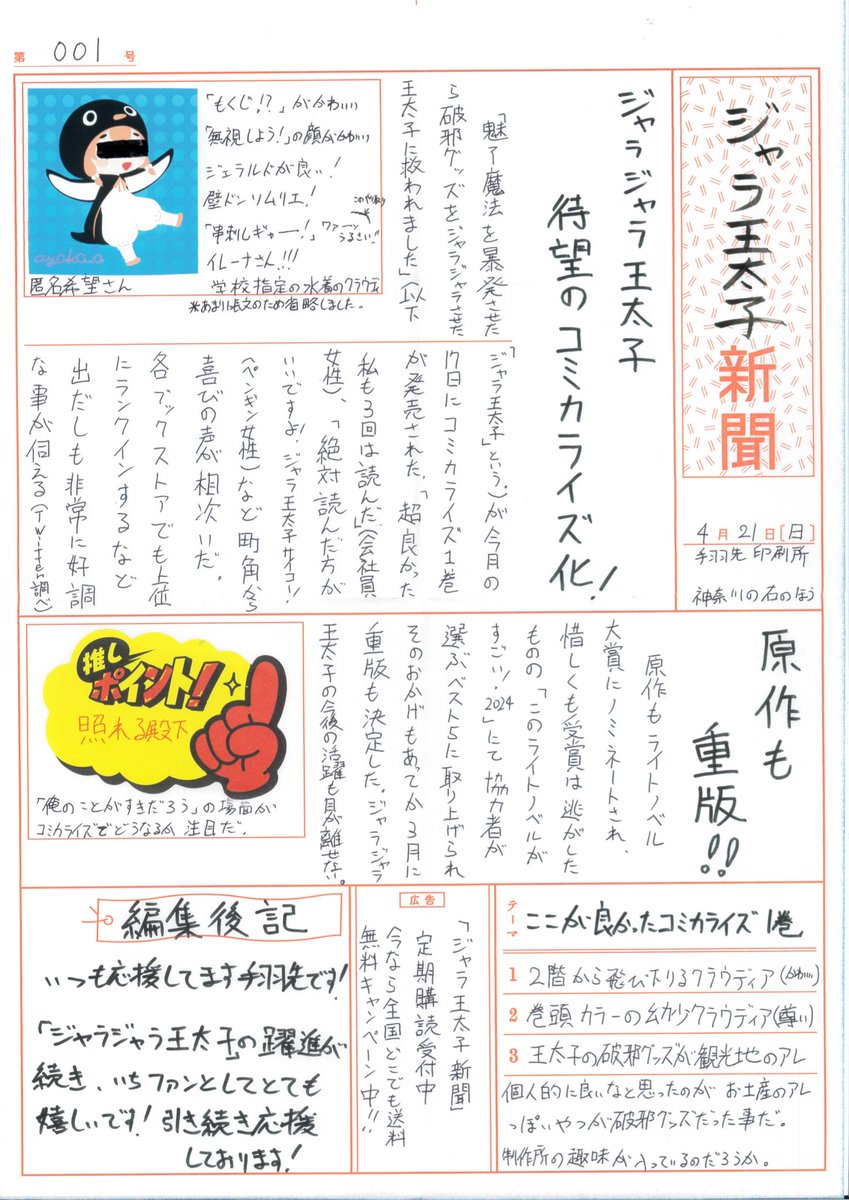 第 001 号
ジャラ王太子新聞
4月21日[日]
手羽先印刷所
神奈川の右のほう
ジャラジャラ王太子
待望のコミカライズ化!
「魅了魔法を暴発させた
ら破邪グッズをジャラジャラさせた
王太子に救われました」(以下
「ジャラ王太子」という。)が今月の
17日にコミカライズ1巻
が発売された。「超良かった
私も3回は読んだ」(会社員
女性)、「絶対読んだ方が
いいですよ!ジャラ王太子サイコー!」
(ペンギン女性)など町角から
喜びの声が相次いだ。
各ブックストアでも上位
にランクインするなど
出だしも非常に好調
な事が伺える(Twitter調べ)
ayaka_o
匿名希望さん
「もくじ!?」がかわいい
「無視しよう!」の顔がかわいい
ジェラルドが良い!
壁ドンソムリエ!
このやり取り
「串刺しギャー!」ワァーッ
うるさい!!
イレーナさん!!!
学校指定の水着のクラウディ
※あまりに長文のため省略しました。
原作も
重版!!
原作もライトノベル
大賞にノミネートされ、
惜しくも受賞は逃がした
ものの「このライトノベルが
すごい!2024」にて協力者が
選ぶベスト5に取り上げられ
そのおかげもあってか3月に
重版も決定した。ジャラジャラ
王太子の今後の活躍も目が離せない。
推しポイント!
照れる殿下
「俺のことがすきだろう」の場面が
コミカライズでどうなるか注目だ。
テーマ ここが良かったコミカライズ1巻
1 2階から飛び下りるクラウディア(かわいい)
2 巻頭カラーの幼少クラウディア(尊い)
3 王太子の破邪グッズが観光地のアレ
個人的に良いなと思ったのが お土産のアレ
っぽいやつが破邪グッズだった事だ。
制作所の趣味が入っているのだろうか。
広告
「ジャラ王太子新聞」
定期購読受付中
今なら全国どこでも送料
無料キャンペーン中!!
編集後記
いつも応援してます手羽先です!
「ジャラジャラ王太子」の躍進が
続き、いちファンとしてとても
嬉しいです!引き続き応援
しております!